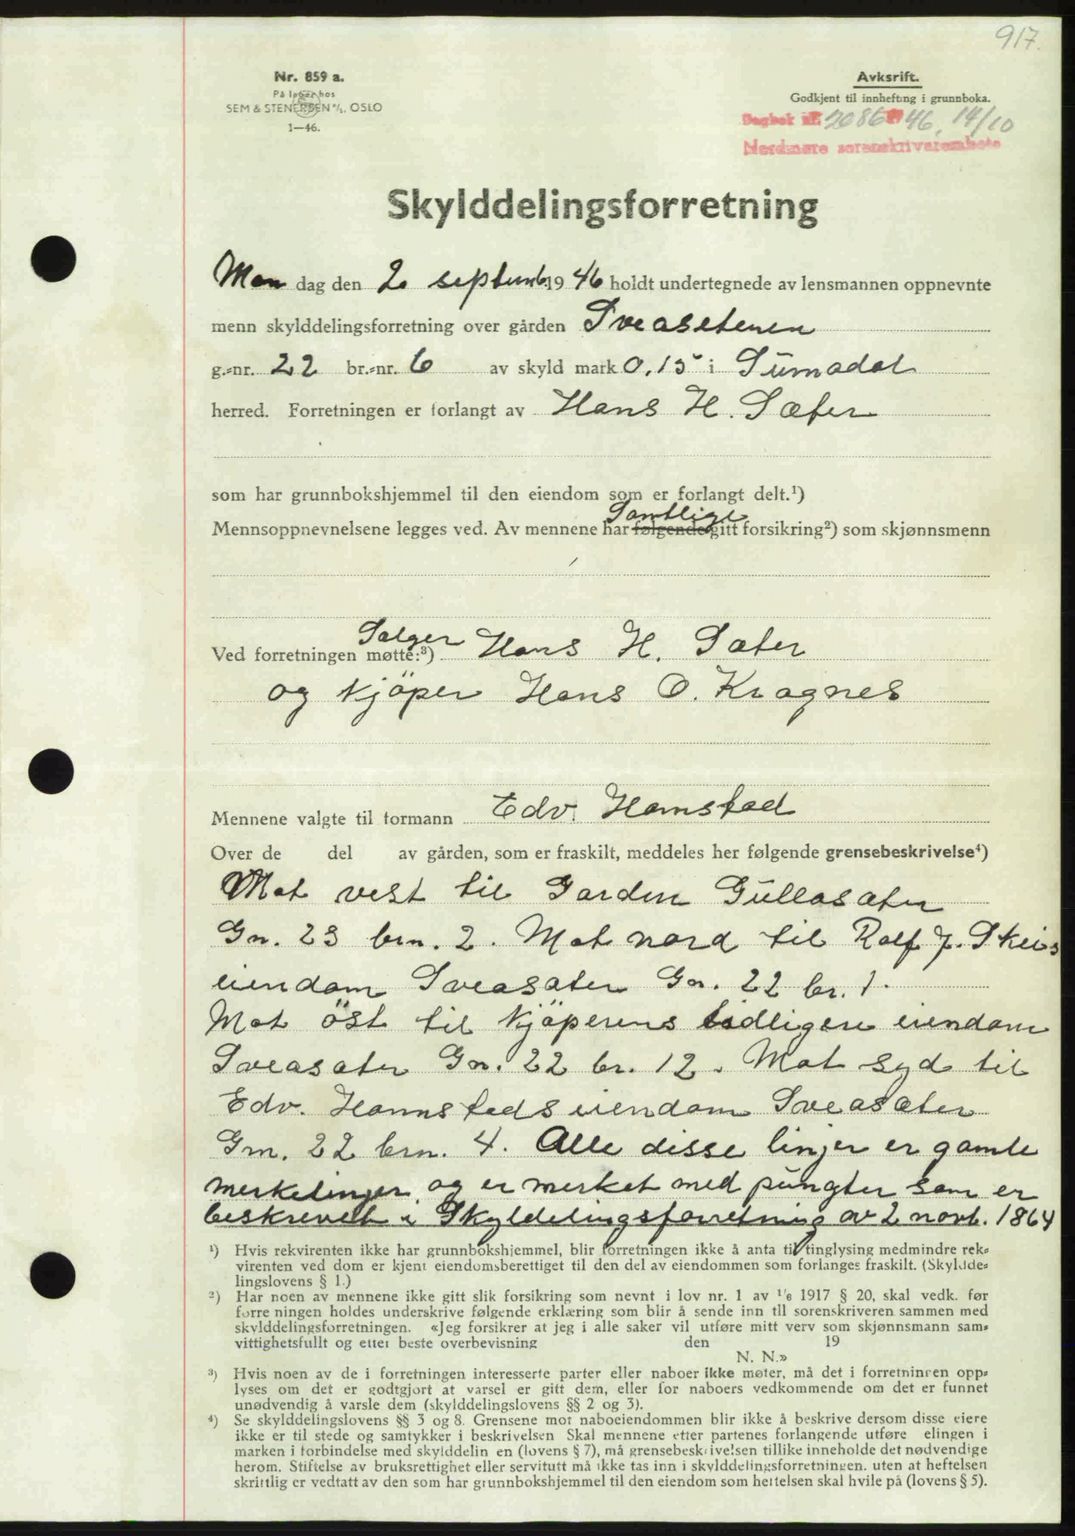 917.
Nr. 859 a.
På lager hos
SEM & STENERSEN A/S, OSLO
1—46.
Avksrift.
Godkjent til innhefting i grunnboka.
Dagbok nr. 2086 46, 14/10
Nordmøre sorenskriverembete
Skylddelingsforretning
Man dag den 2 septemb. 1946 holdt undertegnede av lensmannen oppnevnte
menn skylddelingsforretning over gården Sveaseteren
g.-nr. 22 br.-nr. 6 av skyld mark 0,15 i Surnadal
herred. Forretningen er forlangt av Hans H. Sæter
som har grunnbokshjemmel til den eiendom som er forlangt delt.¹)
Samtlige
Mennsoppnevnelsene legges ved. Av mennene har følgende gitt forsikring²) som skjønnsmenn
Ved forretningen møtte:³) Selger Hans H. Sæter
og kjöper Hans O. Kragnes
Mennene valgte til formann Edv. Hamstad
Over de del av gården, som er fraskilt, meddeles her følgende grensebeskrivelse⁴)
Mot vest til Garden Gullasæter
Gn. 23 brn. 2. Mot nord til Rolf J. Skeis
eiendom Sveasæter Gn. 22 br. 1.
Mot öst til kjöperens tidligere eiendom
Sveasæter Gn. 22 br. 12. Mot syd til
Edv. Hamnstads eiendom Sveasæter
Grn. 22 brn. 4. Alle disse linjer er gamle
merkelinjer og er merket med pungter som er
beskrevet i Skyldelingsforretning av 2 novb. 1864
¹) Hvis rekvirenten ikke har grunnbokshjemmel, blir forretningen ikke å anta til tinglysing medmindre rek-
virenten ved dom er kjent eiendomsberettiget til den del av eiendommen som forlanges fraskilt. (Skyldde-
lingslovens § 1.)
²) Har noen av mennene ikke gitt slik forsikring som nevnt i lov nr. 1 av ¹/6 1917 § 20, skal vedk. før
forre ningen holdes underskrive følgende erklæring som blir å sende inn til sorenskriveren sammen med
skylddelingsforretningen. «Jeg forsikrer at jeg i alle saker vil utføre mitt verv som skjønnsmann sam-
vittighetsfullt og etter beste overbevisning den 19
N. N.»
³) Hvis noen av de i forretningen interesserte parter eller naboer ikke møter, må det i forretningen opp-
lyses om det er godtgjort at varsel er gitt dem, eller for naboers vedkommende om det er funnet
unødvendig å varsle dem (skylddelingslovens §§ 2 og 3).
⁴) Se skylddelingslovens §§ 3 og 8. Grensene mot naboeiendommen blir ikke å beskrive dersom disse eiere
ikke er til stede og samtykker i beskrivelsen Skal mennene etter partenes forlangende utføre elingen i
marken i forbindelse med skylddelin en (lovens § 7), må grensebeskrivelsen tillike inneholde det nødvendige
herom. Stiftelse av bruksrettighet eller servitutt må ikke tas inn i skylddelingsforretningen, uten at heftelsen
skriftlig er vedtatt av den som har grunnbokshjemmel til den eiendom som heftelsen skal hvile på (lovens § 5).